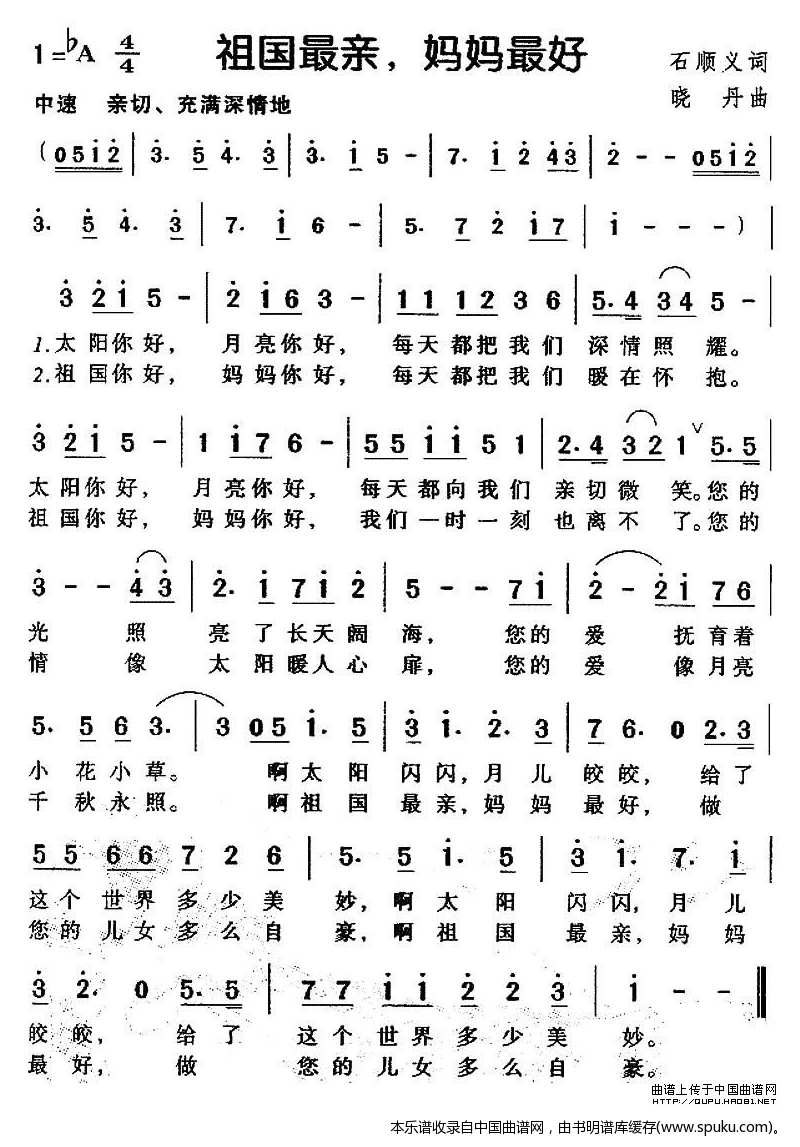 1=♭A 4/4 祖国最亲，妈妈最好 石顺义词
中速 亲切、充满深情地 晓 丹曲
(0512 3. 5 4. 3 | 3. 1 5 - | 7. 1 2 43 | 2 - - 0512 |
3. 5 4. 3 | 7. 1 6 - | 5. 7 2 17 | 1 - - - ) |
3 21 5 - | 2 16 3 - | 11 12 3 6 | 5. 4 34 5 - |
1.太阳你好，月亮你好，每天都把我们深情照耀。
2.祖国你好，妈妈你好，每天都把我们暖在怀抱。
3 21 5 - | 1 17 6 - | 55 11 5 1 | 2. 4 32 1 ∨ 5. 5 |
太阳你好，月亮你好，每天都向我们亲切微笑。您的
祖国你好，妈妈你好，我们一时一刻也离不了。您的
3 - - 43 | 2. 1 71 2 | 5 - - 71 | 2 - 21 76 |
光照亮了长天阔海，您的爱抚育着
情像太阳暖人心扉，您的爱像月亮
5. 5 6 3. | 3 05 1. 5 | 3 1. 2. 3 | 7 6. 0 2. 3 |
小花小草。啊太阳闪闪，月儿皎皎，给了
千秋永照。啊祖国最亲，妈妈最好，做
55 66 7 2 6 | 5. 5 1. 5 | 3 1. 7. 1 |
这个世界多少美妙，啊太阳闪闪，月儿
您的儿女多么自豪，啊祖国最亲，妈妈
3 2. 0 5. 5 | 77 11 2 2 3 | 1 - - ‖
皎皎，给了这个世界多少美妙。
最好，做您的儿女多么自豪。
曲谱上传于中国曲谱网
HTTP://QUPU.HAO81.NET
本乐谱收录自中国曲谱网，由书明谱库缓存(www.spuku.com)。